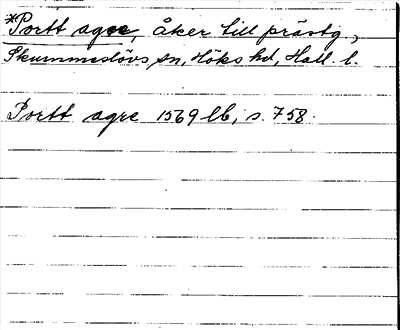 *Portt agre, åker till prästg.,
Skummeslövs sn, Höks hd, Hall. l.
Portt agre 1569 lb, s. 758.